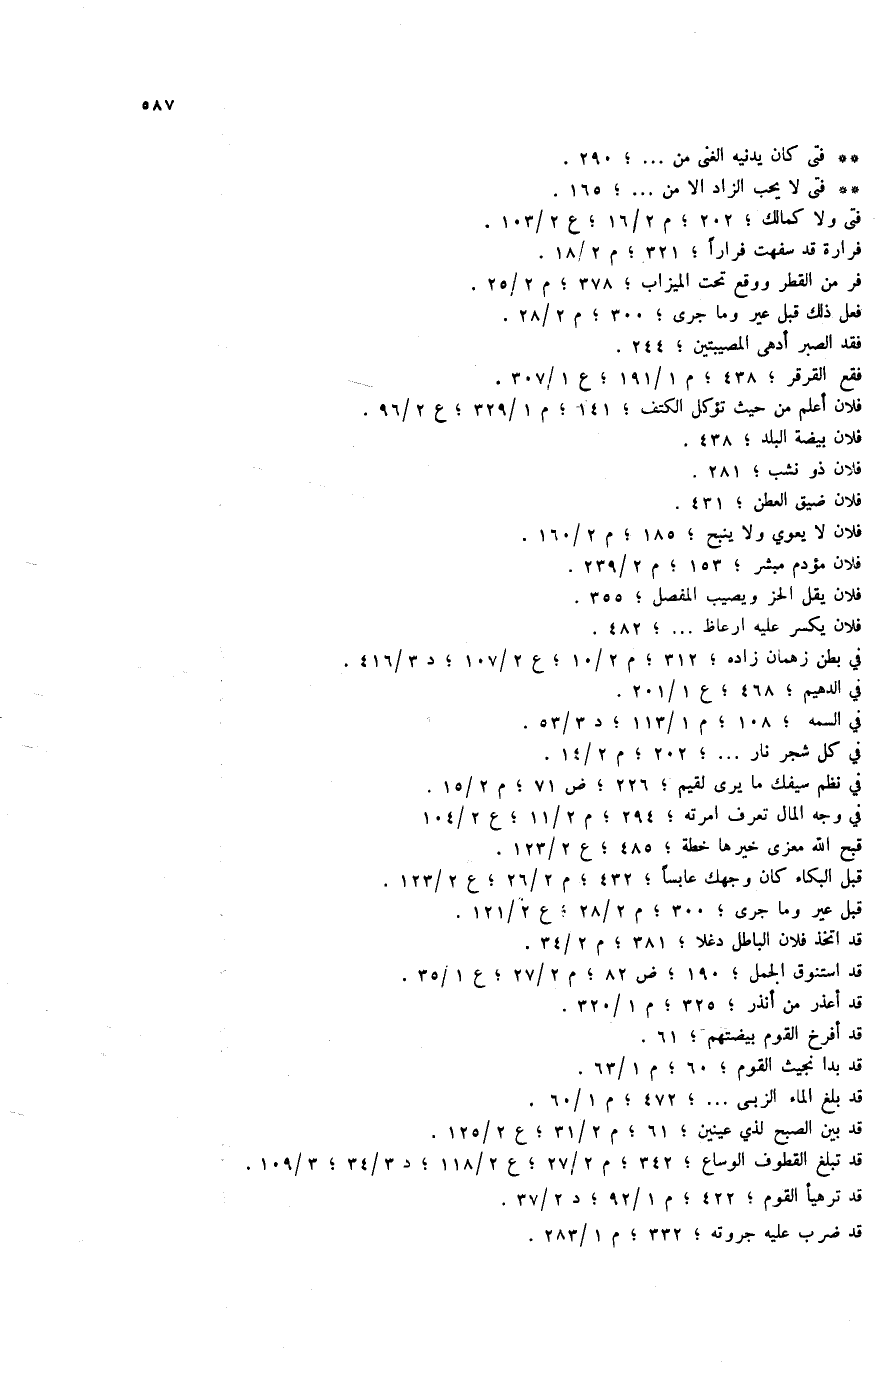 ٥٨٧
** فتى كان يدنيه الغنى من ... ؛ ٢٩٠ .
** فتى لا يحب الزاد الا من ... ؛ ١٦٥ .
فتى ولا كمالك ؛ ٢٠٢ ؛ م ١٦/٢ ؛ ع ١٠٣/٢ .
فرارة قد سفهت فراراً ؛ ٣٢١ ؛ م ١٨/٢ .
فر من القطر ووقع تحت الميزاب ؛ ٣٧٨ ؛ م ٢٥/٢ .
فعل ذلك قبل عير وما جرى ؛ ٣٠٠ ؛ م ٢٨/٢ .
فقد الصبر أدهى المصيبتين ؛ ٢٤٤ .
فقع القرقر ؛ ٤٣٨ ؛ م ١٩١/١ ؛ ع ٣٠٧/١ .
فلان أعلم من حيث تؤكل الكتف ؛ ١٤١ ؛ م ٣٢٩/١ ؛ ع ٩٦/٢ .
فلان بيضة البلد ؛ ٤٣٨ .
فلان ذو نشب ؛ ٢٨١ .
فلان ضيق العطن ؛ ٤٣١ .
فلان لا يعوي ولا ينبح ؛ ١٨٥ ؛ م ١٦٠/٢ .
فلان مؤدم مبشر ؛ ١٥٣ ؛ م ٢٣٩/٢ .
فلان يقل الحز ويصيب المفصل ؛ ٣٥٥ .
فلان يكسر عليه ارعاظ ... ؛ ٤٨٢ .
في بطن زهمان زاده ؛ ٣١٢ ؛ م ١٠/٢ ؛ ع ١٠٧/٢ ؛ د ٤١٦/٣ .
في الدهيم ؛ ٤٦٨ ؛ ع ٢٠١/١ .
في السمه ؛ ١٠٨ ؛ م ١١٣/١ ؛ د ٥٣/٣ .
في كل شجر نار ... ؛ ٢٠٢ ؛ م ١٤/٢ .
في نظم سيفك ما يرى لقيم ؛ ٢٢٦ ؛ ض ٧١ ؛ م ١٥/٢ .
في وجه المال تعرف امرته ؛ ٢٩٤ ؛ م ١١/٢ ؛ ع ١٠٤/٢
قبح الله معزى خيرها خطة ؛ ٤٨٥ ؛ ع ١٢٣/٢ .
قبل البكاء كان وجهك عابساً ؛ ٤٣٢ ؛ م ٢٦/٢ ؛ ع ١٢٣/٢ .
قبل عير وما جرى ؛ ٣٠٠ ؛ م ٢٨/٢ ؛ ع ١٢١/٢ .
قد اتخذ فلان الباطل دغلا ؛ ٣٨١ ؛ م ٣٤/٢ .
قد استنوق الجمل ؛ ١٩٠ ؛ ض ٨٢ ؛ م ٢٧/٢ ؛ ع ٣٥/١ .
قد أعذر من أنذر ؛ ٣٢٥ ؛ م ٣٢٠/١ .
قد أفرخ القوم بيضتهم ؛ ٦١ .
قد بدا نجيث القوم ؛ ٦٠ ؛ م ٦٣/١ .
قد بلغ الماء الزبى ... ؛ ٤٧٢ ؛ م ٦٠/١ .
قد بين الصبح لذي عينين ؛ ٦١ ؛ م ٣١/٢ ؛ ع ١٢٥/٢ .
قد تبلغ القطوف الوساع ؛ ٣٤٢ ؛ م ٢٧/٢ ؛ ع ١١٨/٢ ؛ د ٣٤/٣ ؛ ١٠٩/٣ .
قد ترهيأ القوم ؛ ٤٢٢ ؛ م ٩٢/١ ؛ د ٣٧/٢ .
قد ضرب عليه جروته ؛ ٣٣٢ ؛ م ٢٨٣/١ .